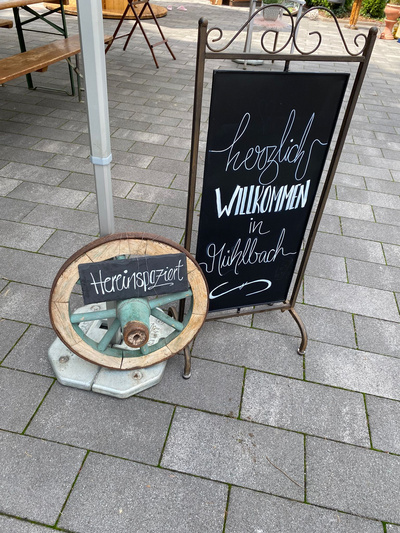 herzlich
WILLKOMMEN
in
Mühlbach
Hereinspaziert